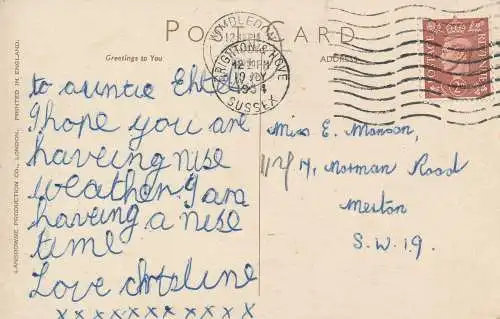 POST CARD
Greetings to You
ADDRESS
WIMBLEDON
BRIGHTON & HOVE
12.15 PM
19
1951
SUSSEX
POSTAGE
REVENUE
to auntie
I hope you are
haveing nise
weather. I am
having a nise
time
Love
x x x x x x x x x x x
Miss E. Manson,
14, Norman Road
Merton
S.W.19.
LANSDOWNE PRODUCTION CO., LONDON. PRINTED IN ENGLAND.